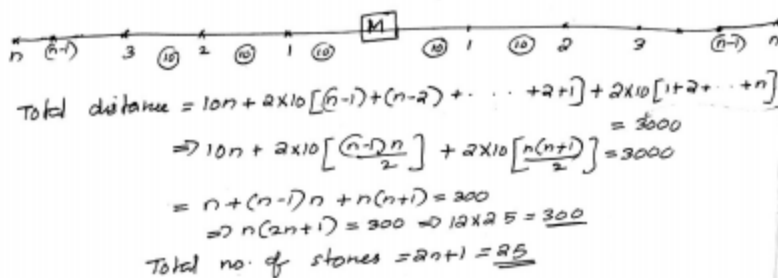 M
n (n-1) 3 ⑩ 2 ⑩ 1 ⑩ ⑩ 1 ⑩ 2 3 (n-1) n
Total distance = 10n + 2×10[(n-1)+(n-2) + · · · · +2+1] + 2×10[1+2+ · · +n]
= 3000
⇒ 10n + 2×10[(n-1)n/2] + 2×10[n(n+1)/2] = 3000
= n+(n-1)n + n(n+1) = 300
⇒ n(2n+1) = 300 ⇒ 12×25 = 300
Total no. of stones = 2n+1 = 25